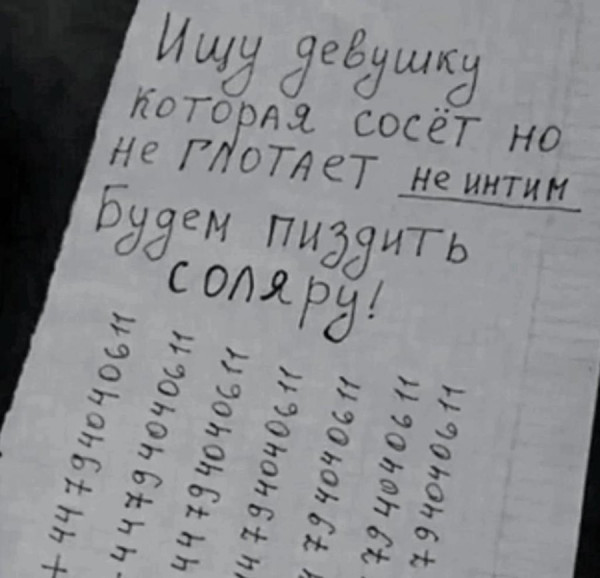 Ищу девушку
которая сосёт но
не глотает не интим
Будем пиздить
соляру!
+44794040611
44794040611
44794040611
44794040611
4794040611
794040611
794040611